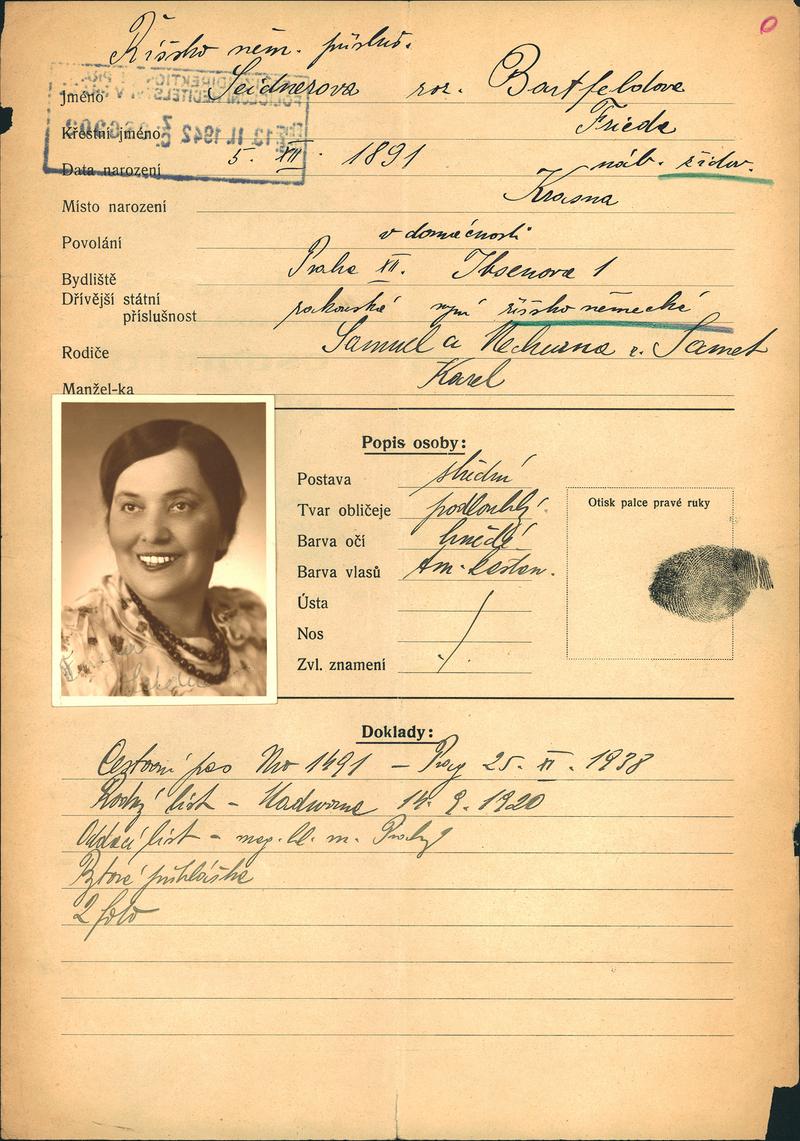 Říšsko něm. přísluš.
Jméno Seidnerova roz. Bartfeldova
Křestní jméno Frieda
Data narození 5. XII. 1891 náb. židov.
Místo narození Krasna
Povolání v domácnosti
Bydliště Praha XII. Ibsenova 1
Dřívější státní
příslušnost rakouské nyní říšsko německé
Rodiče Samuel a r. Samet
Manžel-ka Karel
Popis osoby:
Postava střední
Tvar obličeje podlouhlý
Barva očí hnědé
Barva vlasů tm. kaštan.
Ústa
Nos
Zvl. znamení
Otisk palce pravé ruky
Doklady:
Cestovní pas No 1491 – Prag 25. XI. 1938
Rodný list – Nadworna 14. 9. 1920
Oddací list – mag. hl. m. Prahy
Bytová přihláška
2 foto